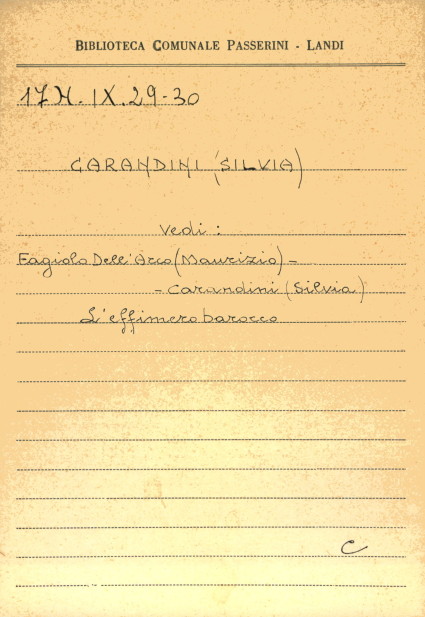 BIBLIOTECA COMUNALE PASSERINI - LANDI
17 H. IX. 29-30
CARANDINI (SILVIA)
Vedi :
Fagiolo Dell'Arco (Maurizio) -
- Carandini (Silvia)
L'effimero barocco
C